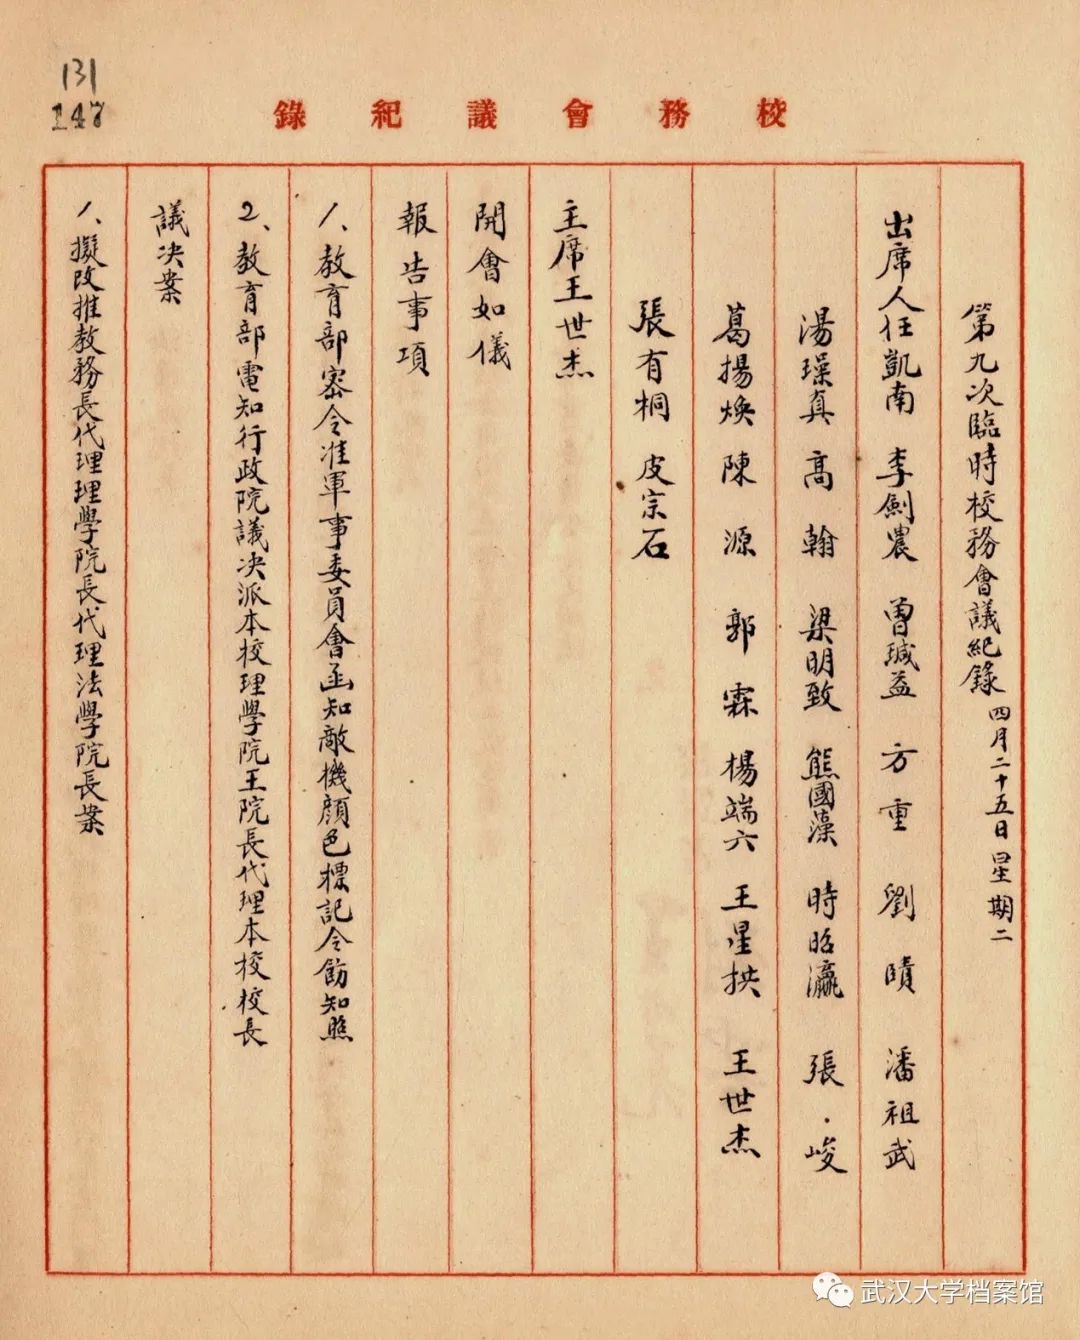 131
147
校務會議紀錄
第九次臨時校務會議紀錄 四月二十五日星期二
出席人任凱南 李劍農 曾瑊益 方重 劉賾 潘祖武
湯璪真 高翰 梁明致 熊國藻 時昭瀛 張·峻
葛揚煥 陳源 郭霖 楊端六 王星拱 王世杰
張有桐 皮宗石
主席王世杰
開會如儀
報告事項
1、教育部密令准軍事委員會函知敵機顏色標記令飭知照
2、教育部電知行政院議決派本校理學院王院長代理本校校長
議決案
1、擬改推教務長代理理學院長代理法學院長案
武汉大学档案馆